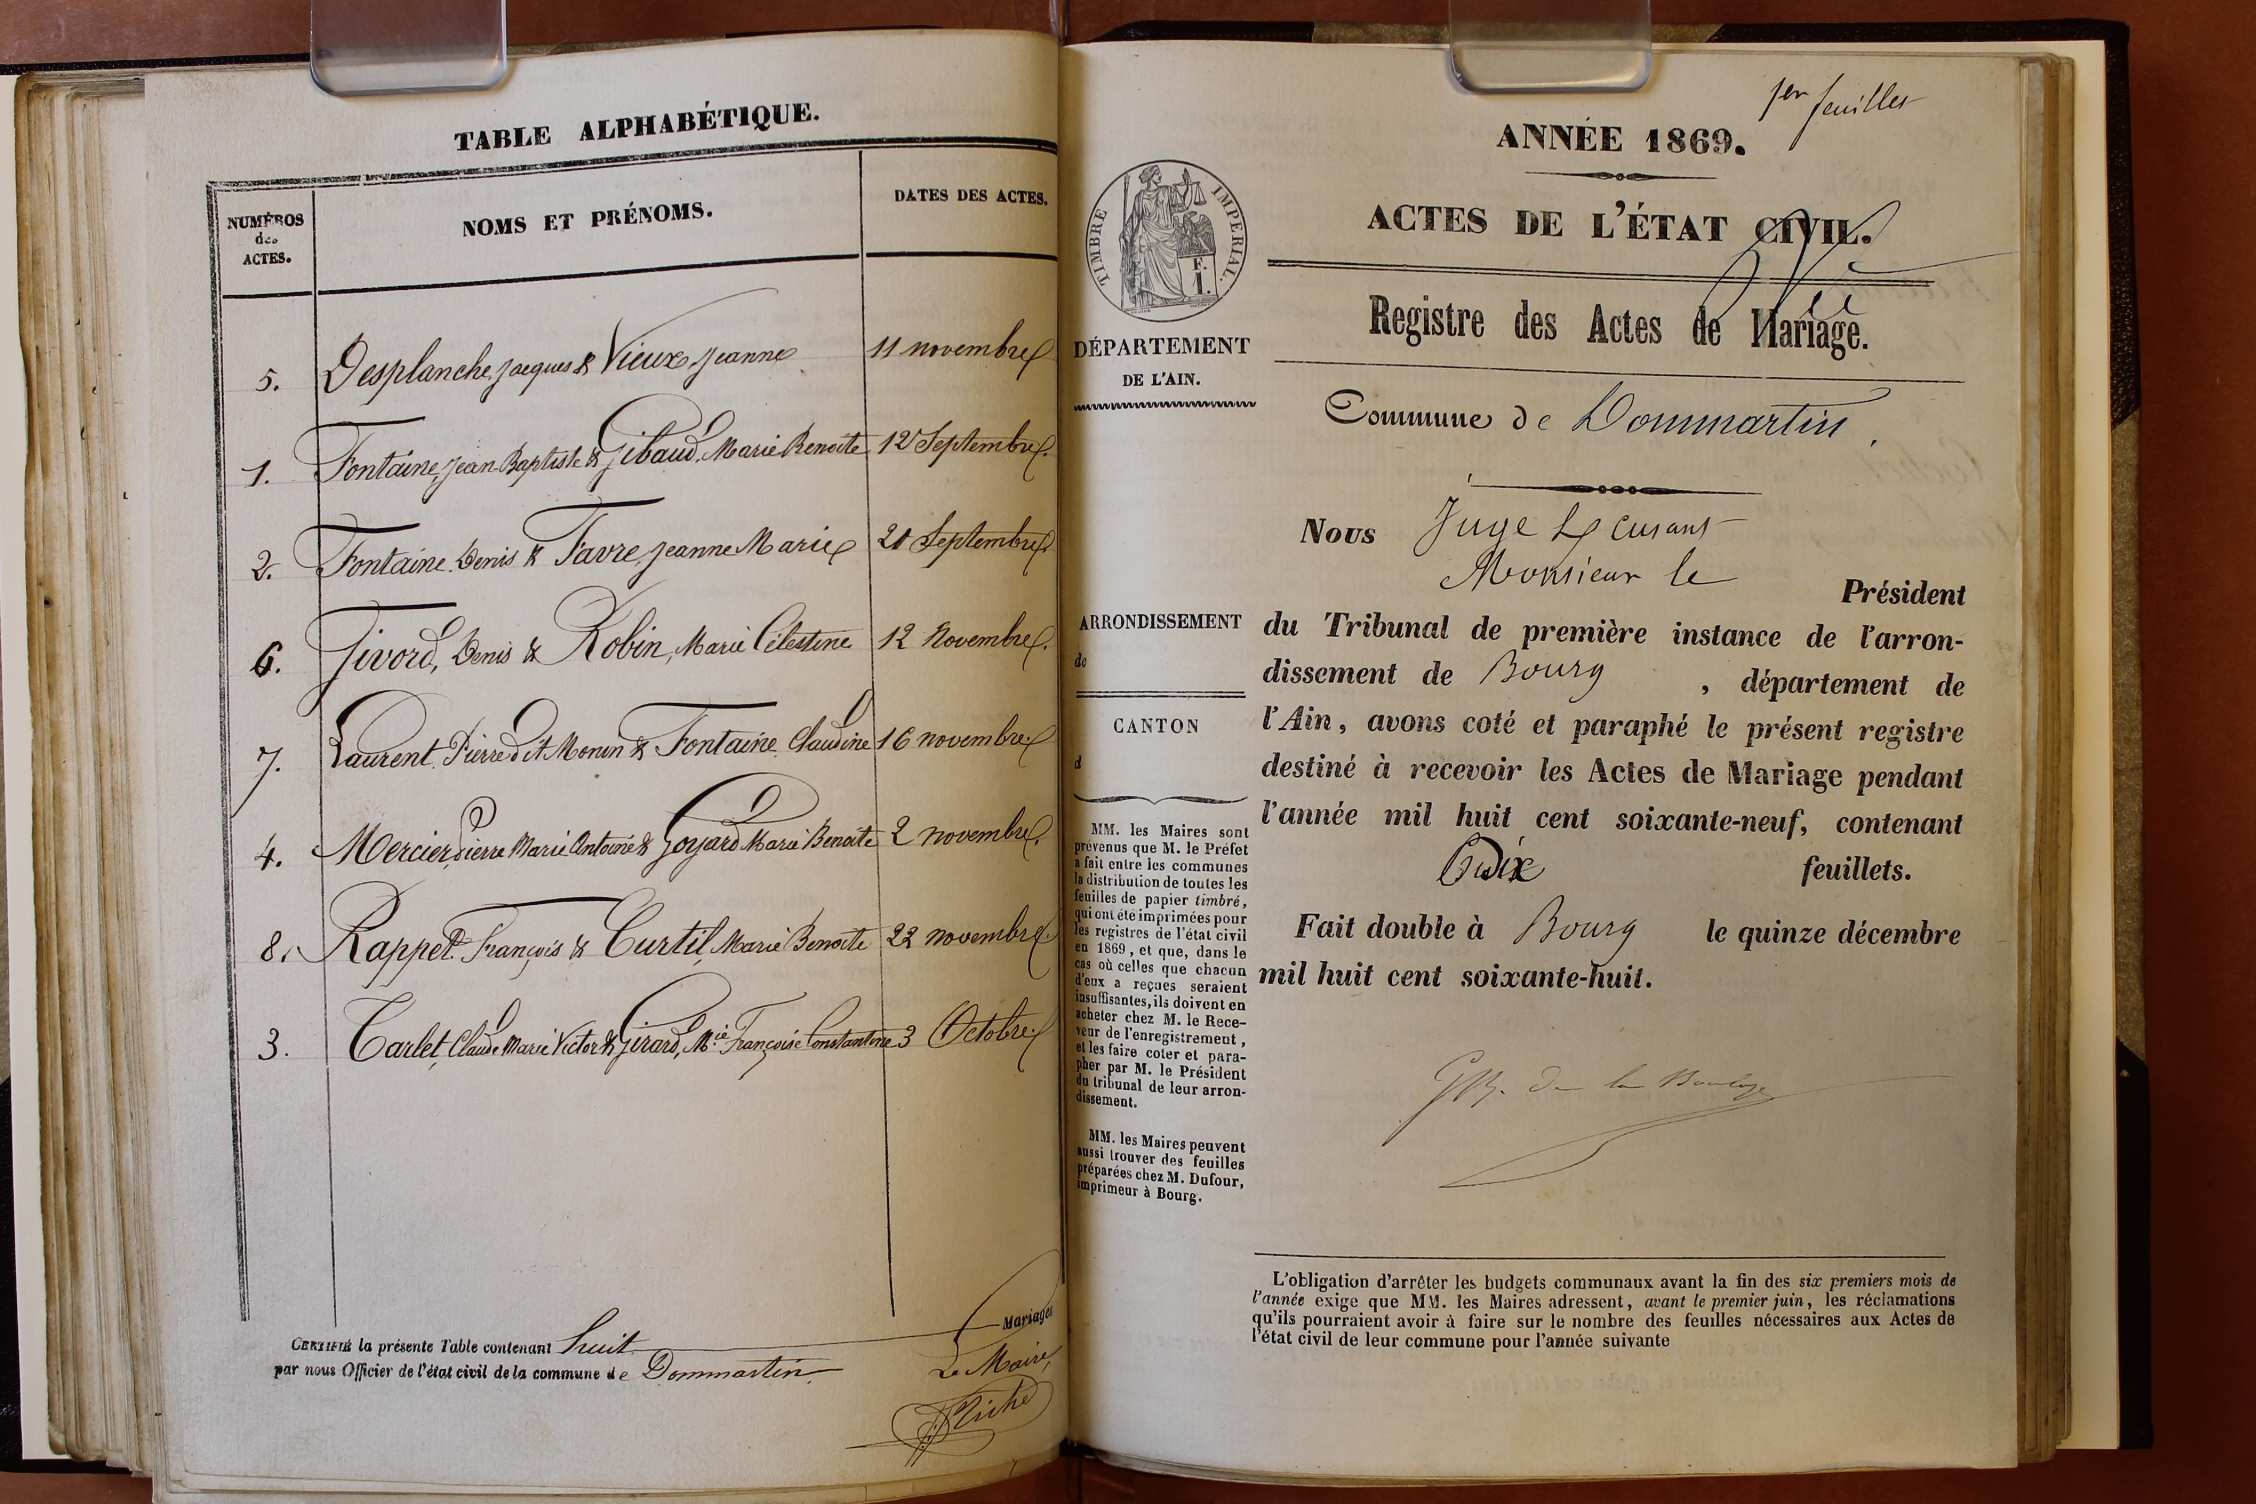 TABLE ALPHABÉTIQUE.
NUMÉROS des ACTES.
NOMS ET PRÉNOMS.
DATES DES ACTES.
5. Desplanche, Jacques & Vieux, Jeanne 11 novembre
1. Fontaine, Jean Baptiste & Gibaud, Marie Benoite 12 Septembre.
2. Fontaine Denis & Favre, Jeanne Marie 20 Septembre
6. Givord, Denis & Robin, Marie Célestine 12 Novembre.
7. Laurent Pierre dit Monon & Fontaine Claudine 16 novembre
4. Mercier, Pierre Marie Antoine & Goyard Marie Benoite 2 novembre.
8. Rappet François & Curtil, Marie Benoite 22 novembre.
3. Carlet, Claude Marie Victor & Girard, Mie Françoise Constantine 3 Octobre
CERTIFIÉ la présente Table contenant huit Mariages
par nous Officier de l'état civil de la commune de Dommartin
Le Maire,
1er feuillet
ANNÉE 1869.
ACTES DE L'ÉTAT CIVIL.
Registre des Actes de Mariage.
Commune de Dommartin
TIMBRE IMPÉRIAL.
F.
1.
DÉPARTEMENT
DE L'AIN.
ARRONDISSEMENT
de
CANTON
d
MM. les Maires sont
prévenus que M. le Préfet
a fait entre les communes
la distribution de toutes les
feuilles de papier timbré,
qui ont été imprimées pour
les registres de l'état civil
en 1869, et que, dans le
cas où celles que chacun
d'eux a reçues seraient
insuffisantes, ils doivent en
acheter chez M. le Rece-
veur de l'enregistrement,
et les faire coter et para-
pher par M. le Président
du tribunal de leur arron-
dissement.
MM. les Maires peuvent
aussi trouver des feuilles
préparées chez M. Dufour,
imprimeur à Bourg.
Nous Juge
Monsieur le Président
du Tribunal de première instance de l'arron-
dissement de Bourg, département de
l'Ain, avons coté et paraphé le présent registre
destiné à recevoir les Actes de Mariage pendant
l'année mil huit cent soixante-neuf, contenant
Dix feuillets.
Fait double à Bourg le quinze décembre
mil huit cent soixante-huit.
L'obligation d'arrêter les budgets communaux avant la fin des six premiers mois de
l'année exige que MM. les Maires adressent, avant le premier juin, les réclamations
qu'ils pourraient avoir à faire sur le nombre des feuilles nécessaires aux Actes de
l'état civil de leur commune pour l'année suivante